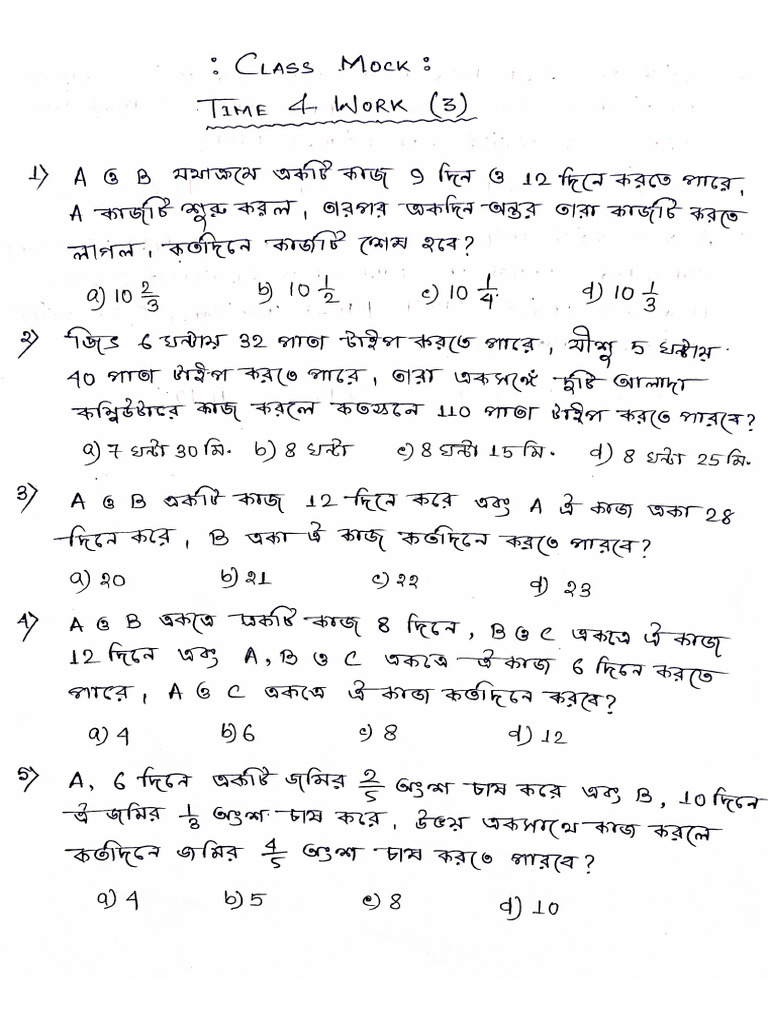 : CLASS MOCK :
TIME & WORK (3)
1) A ও B যথাক্রমে একটি কাজ 9 দিন ও 12 দিনে করতে পারে,
A কাজটি শুরু করল, তারপর একদিন অন্তর তারা কাজটি করতে
লাগল, কতদিনে কাজটি শেষ হবে?
a) 10 2/3 b) 10 1/2 c) 10 1/4. d) 10 1/3
2) জিৎ 6 ঘন্টায় 32 পাতা টাইপ করতে পারে, যীশু 5 ঘন্টায়
40 পাতা টাইপ করতে পারে, তারা একসঙ্গে দুটি আলাদা
কম্পিউটারে কাজ করলে কতক্ষনে 110 পাতা টাইপ করতে পারবে?
a) 7 ঘন্টা 30 মি. b) 8 ঘন্টা c) 8 ঘন্টা 15 মি. d) 8 ঘন্টা 25 মি.
3) A ও B একটি কাজ 12 দিনে করে এবং A ঐ কাজ একা 28
দিনে করে, B একা ঐ কাজ কতদিনে করতে পারবে?
a) 20 b) 21 c) 22 d) 23
4) A ও B একত্রে একটি কাজ 8 দিনে, B ও C একত্রে ঐ কাজ
12 দিনে এবং A, B ও C একত্রে ঐ কাজ 6 দিনে করতে
পারে, A ও C একত্রে ঐ কাজ কতদিনে করবে?
a) 4 b) 6 c) 8 d) 12
5) A, 6 দিনে একটি জমির 2/5 অংশ চাষ করে এবং B, 10 দিনে
ঐ জমির 1/3 অংশ চাষ করে, উভয় একসাথে কাজ করলে
কতদিনে জমির 4/5 অংশ চাষ করতে পারবে?
a) 4 b) 5 c) 8 d) 10